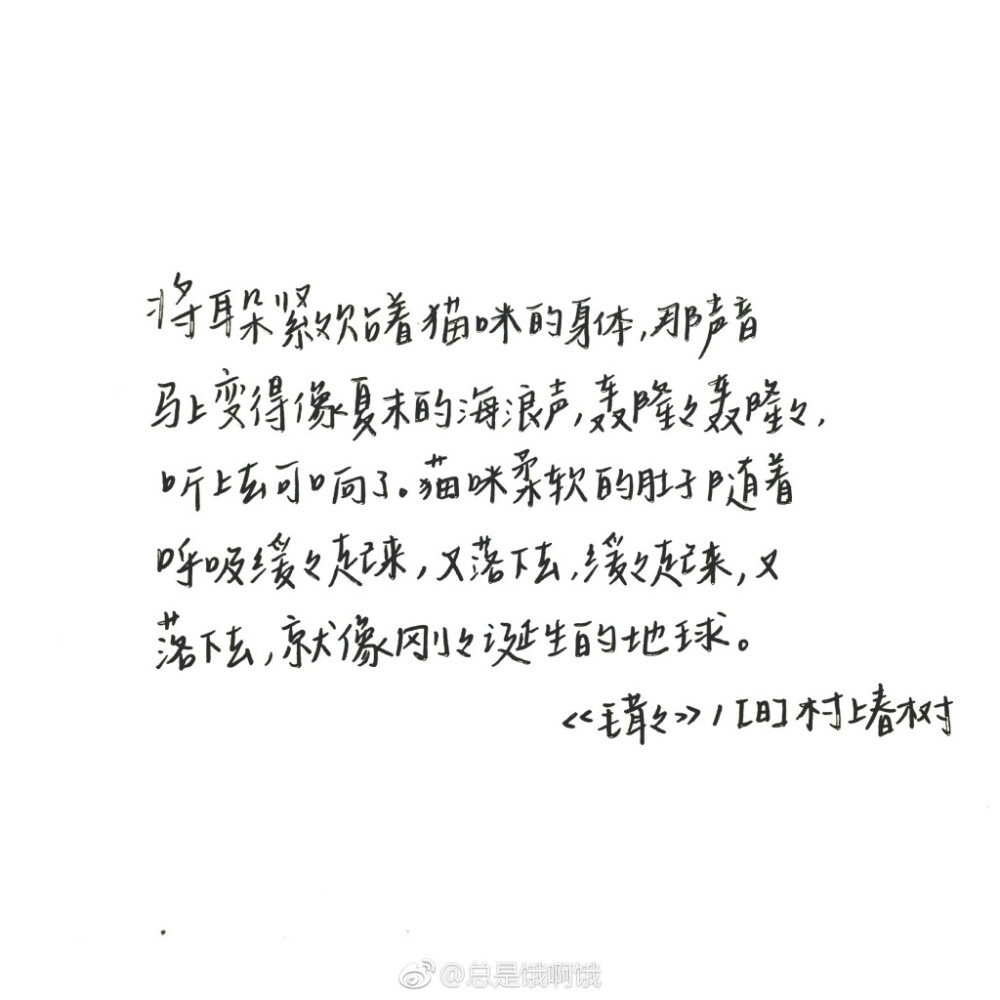 将耳朵紧紧贴着猫咪的身体,那声音
马上变得像夏末的海浪声,轰隆々轰隆々,
听上去可响了。猫咪柔软的肚子随着
呼吸缓々起来,又落下去,缓々起来,又
落下去,就像刚々诞生的地球。
《毛茸々》/[日]村上春树
@总是饿啊饿